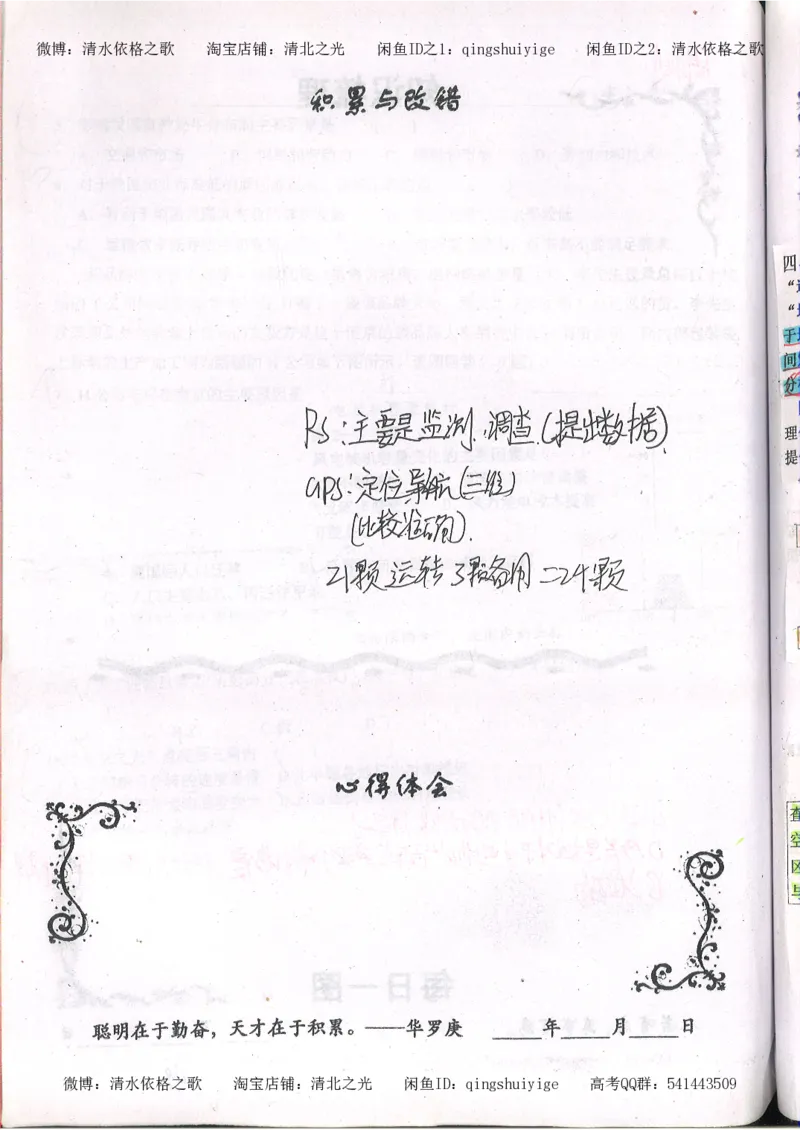 微博：清水依格之歌 淘宝店铺：清北之光 闲鱼ID之1：qingshuiyige 闲鱼ID之2：清水依格之歌
积累与改错
RS：主要是监测、调查.(提出数据)
GPS：定位导航(三维)
(比较准确).
21颗运转 3颗备用 =24颗
心得体会
聪明在于勤奋，天才在于积累。——华罗庚 _____年_____月_____日
微博：清水依格之歌 淘宝店铺：清北之光 闲鱼ID：qingshuiyige 高考QQ群：541443509
四
于
间
分
理
提
查
空
区
与